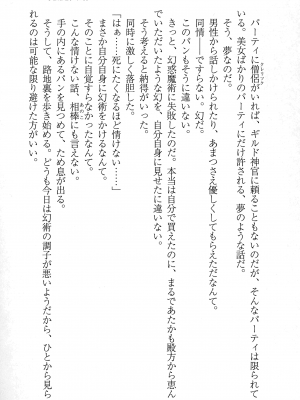 パーティに僧侶がいれば、ギルド神官に頼ることもないのだが、そんなパーティは限られて
いる。美女ばかりのパーティにだけ許される、夢のような話だ。
そう、夢なのだ。
男性から話しかけられたり、あまつさえ優しくしてもらえただなんて。
同情――ですらない。幻だ。
このパンもそうに違いない。
きっと、幻惑魔術に失敗したのだ。本当は自分で買えたのに、まるであたかも殿方から恵ん
でいただいたような幻を、自分自身に見せたに違いない。
そう考えると納得がいった。
同時に激しく落胆した。
「はぁ……死にたくなるほど情けない……」
まさか自分自身に幻術をかけるなんて。
そのことに自覚すらなかったなんて。
こんな情けない話、相棒にも言えない。
手の内にあるパンを見つめて、ため息が出る。
そして、路地裏を歩き始める。どうも今日は幻術の調子が悪いようだから、ひとから見ら
れるのは可能な限り避けた方がいい。